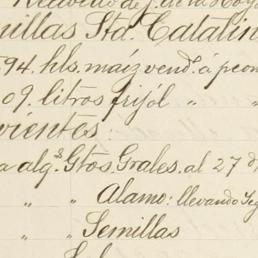 illas Sta. Catalin
94. hls. maíz vend.s á peon
09. litros frijol " "
vientes:
a alqs. Gtos. Grales. al 27 d
" " Alamo: llevando Seg
" " Semillas